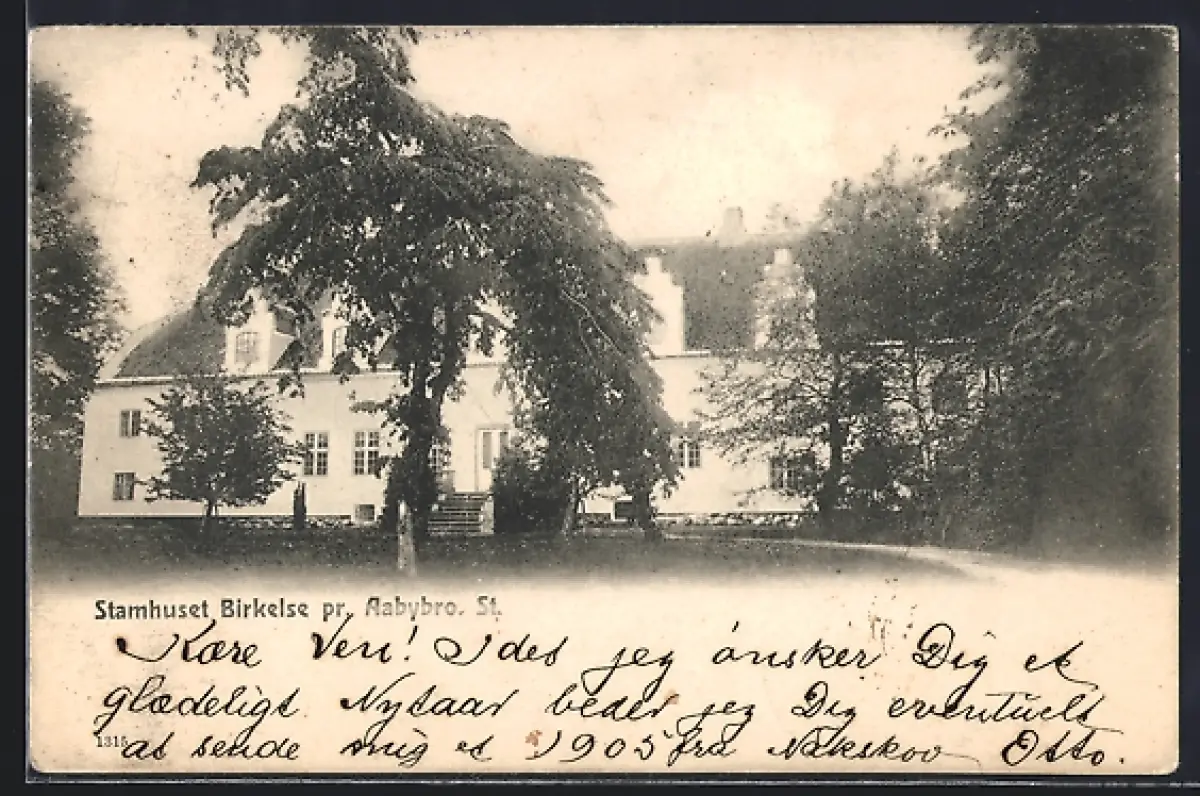 Stamhuset Birkelse pr. Aabybro. St.
Kære Ven! Idet jeg ønsker Dig et
glædeligt Nytaar beder jeg Dig eventuelt
1315
at sende mig et 1905 fra Nakskov Otto.